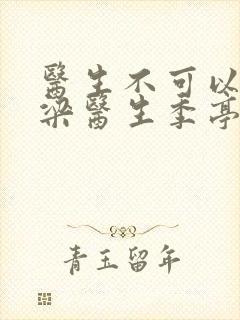 醫生不可以
梁醫生季亭
青玉留年